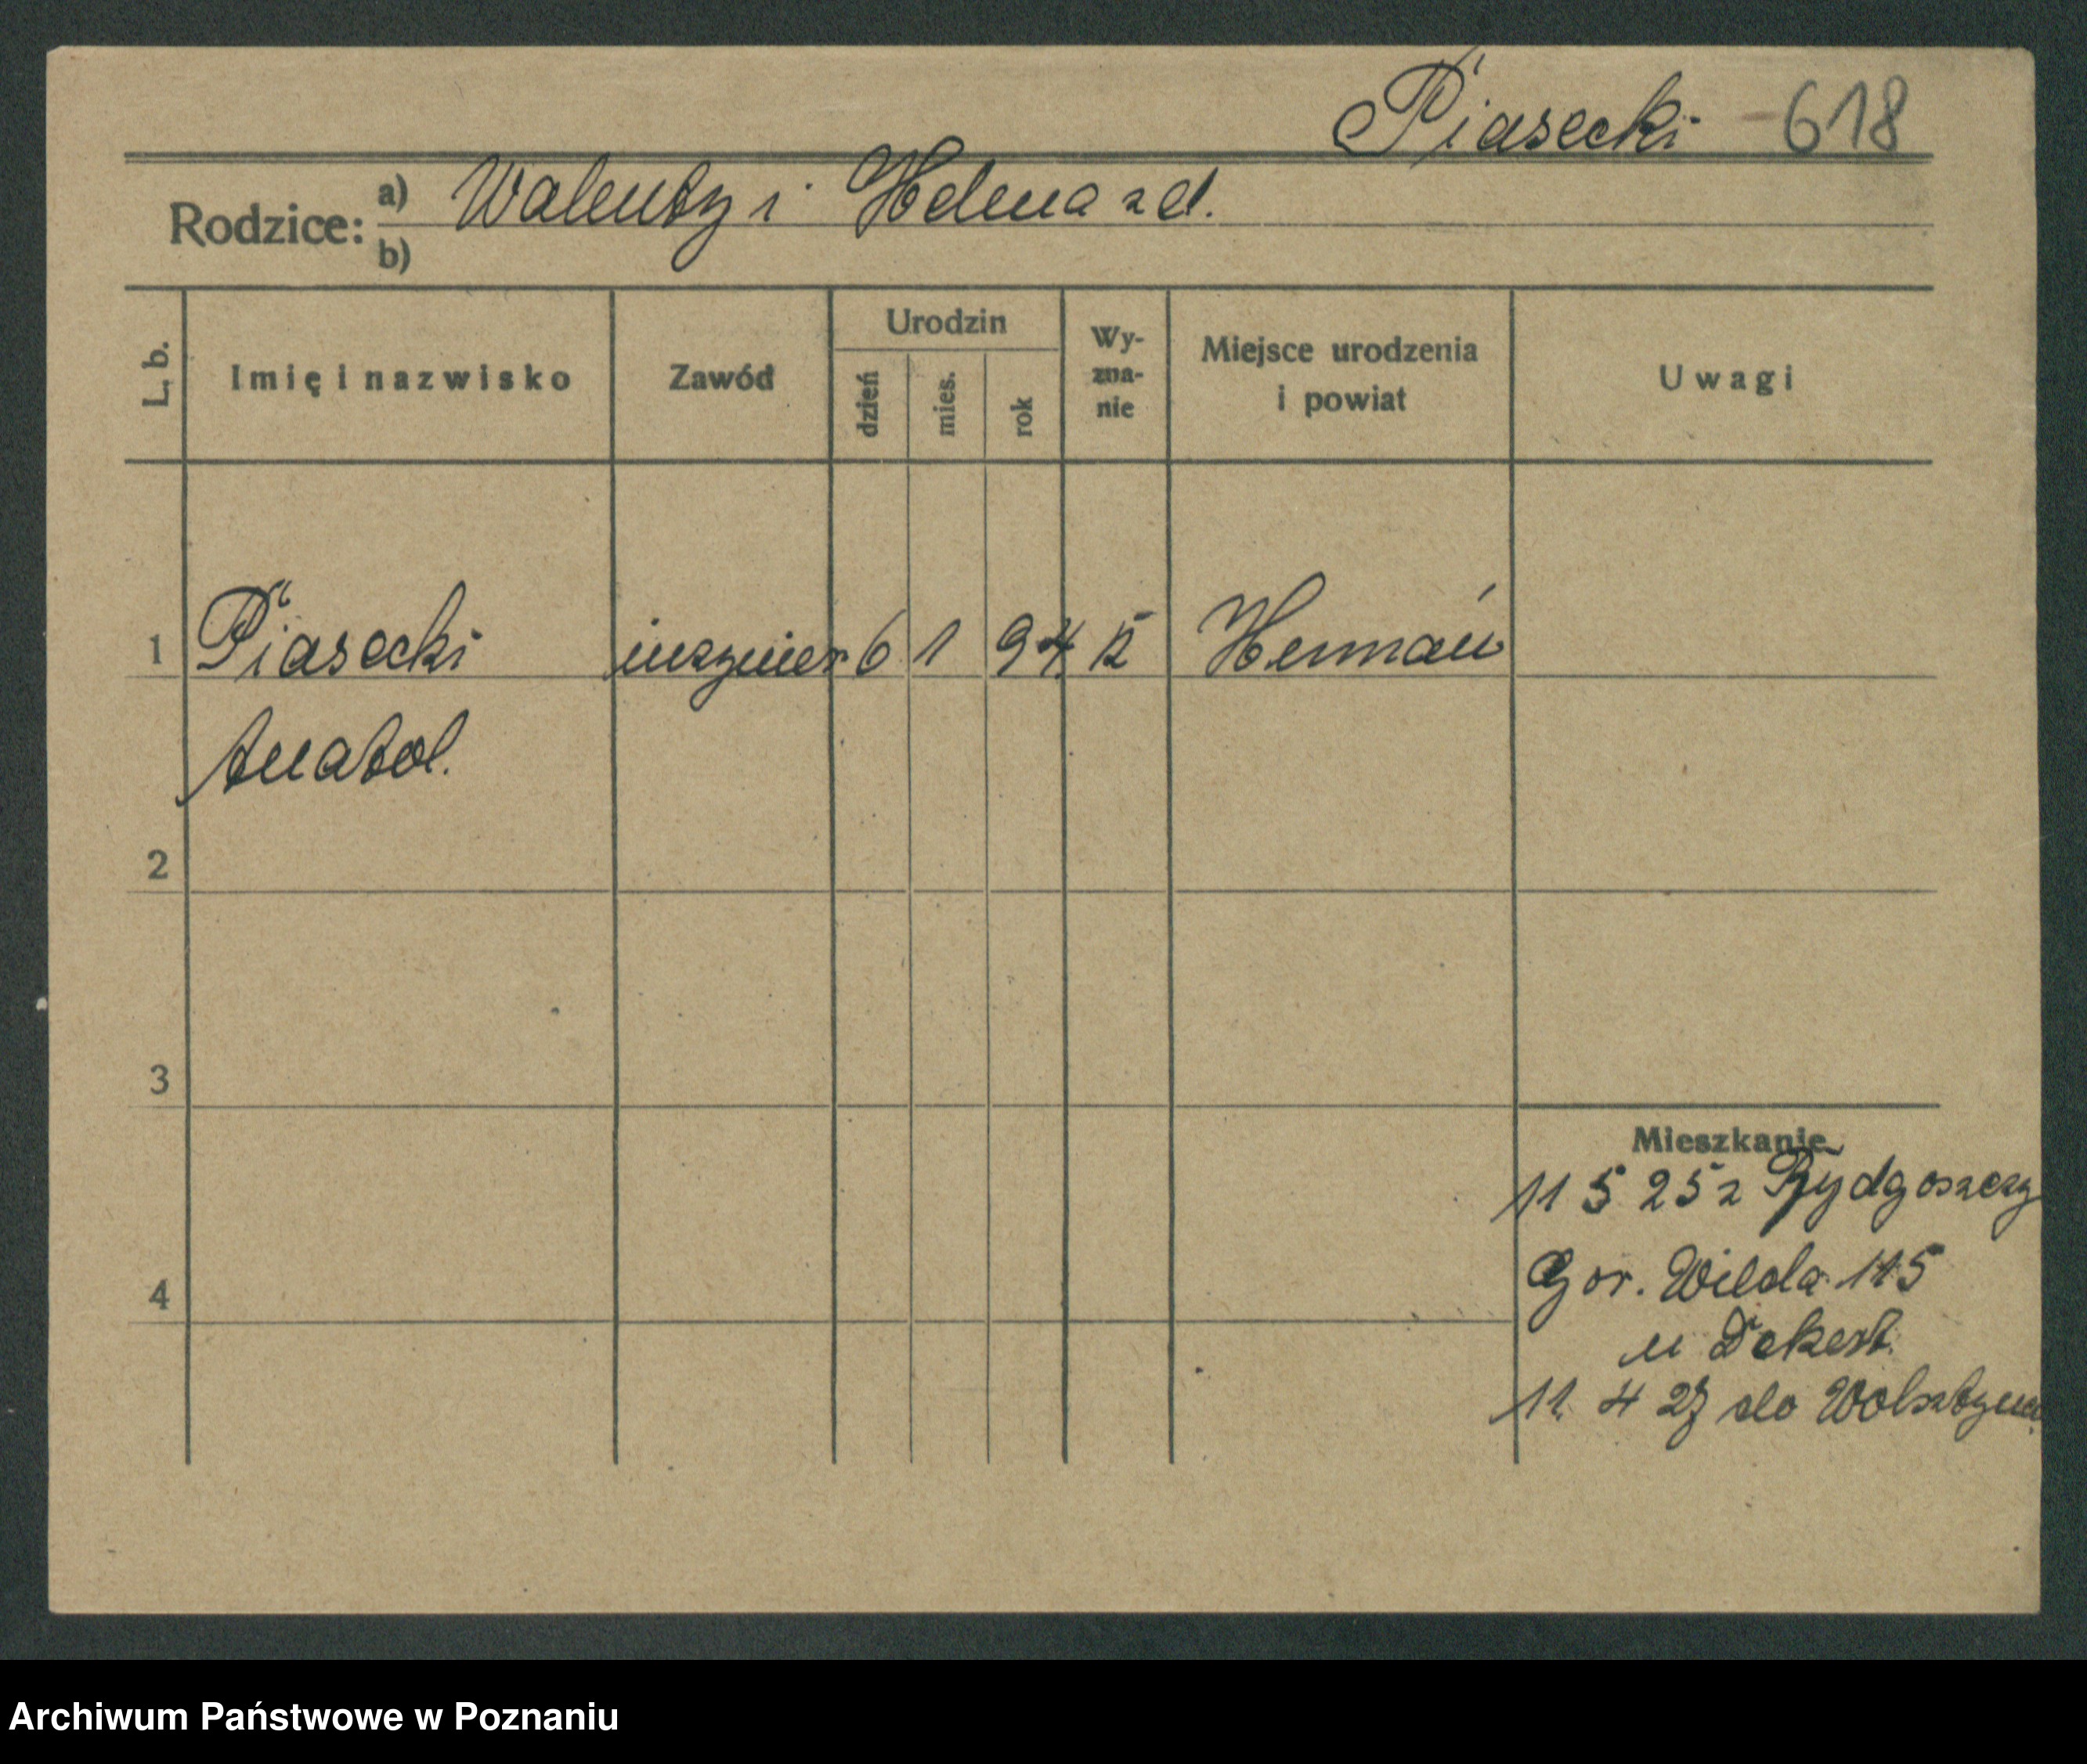 Piasecki 618
Rodzice: a) Walenty i Helena z d.
b)
L. b. Imię i nazwisko Zawód Urodzin dzień mies. rok Wy-zna-nie Miejsce urodzenia i powiat Uwagi
1 Piasecki inzynier 6 1 94 k Hermań
Anatol.
2
3
Mieszkanie
11 5 25 z Bydgoszczy
Gor. Wilda 115
4
u Dekert.
11. 4 27 do Wolsztyna
Archiwum Państwowe w Poznaniu